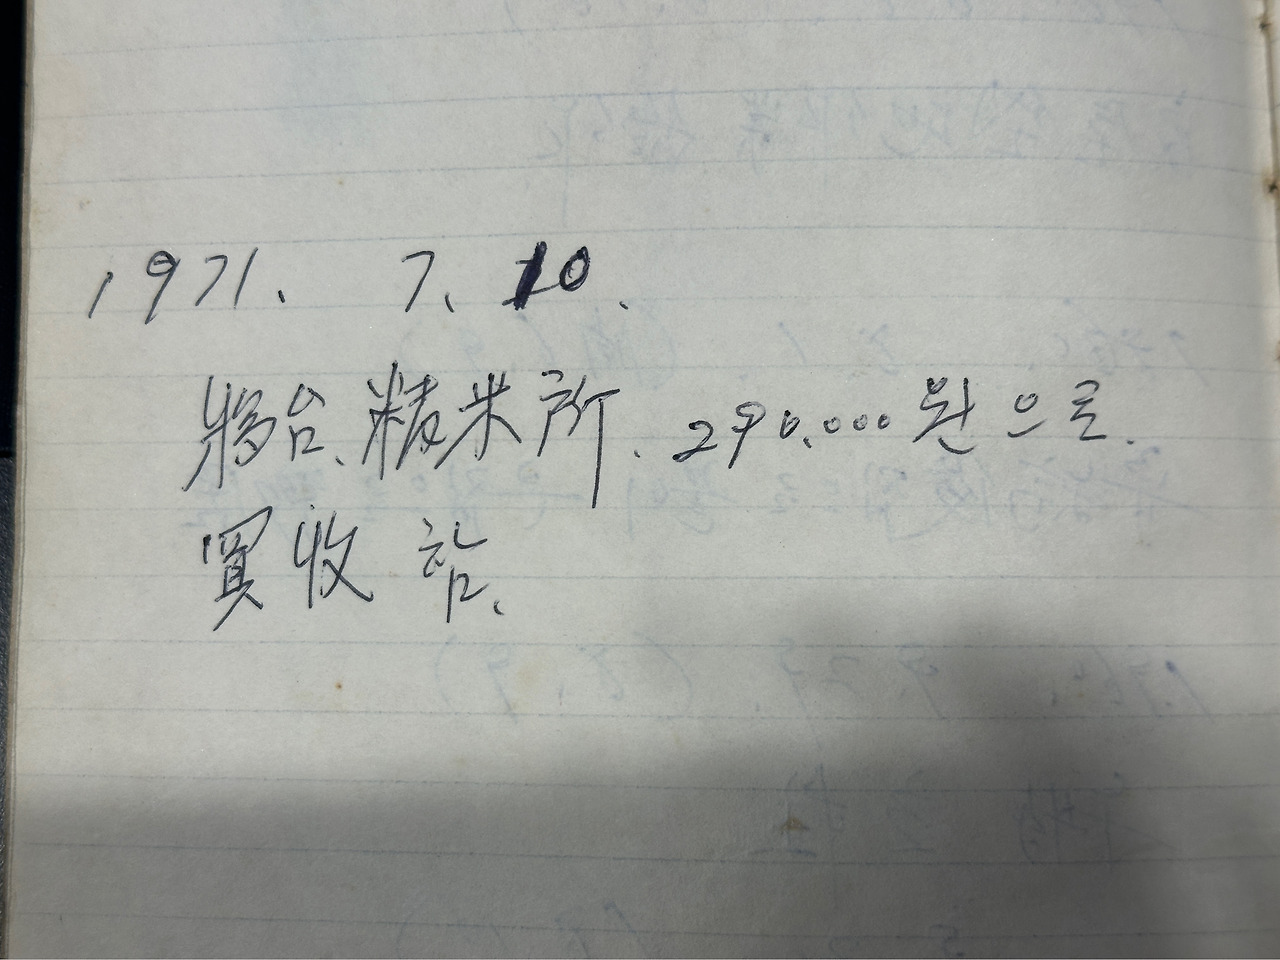 1971. 7. 10.
將台.精米所. 290.000 원으로.
買收 함.